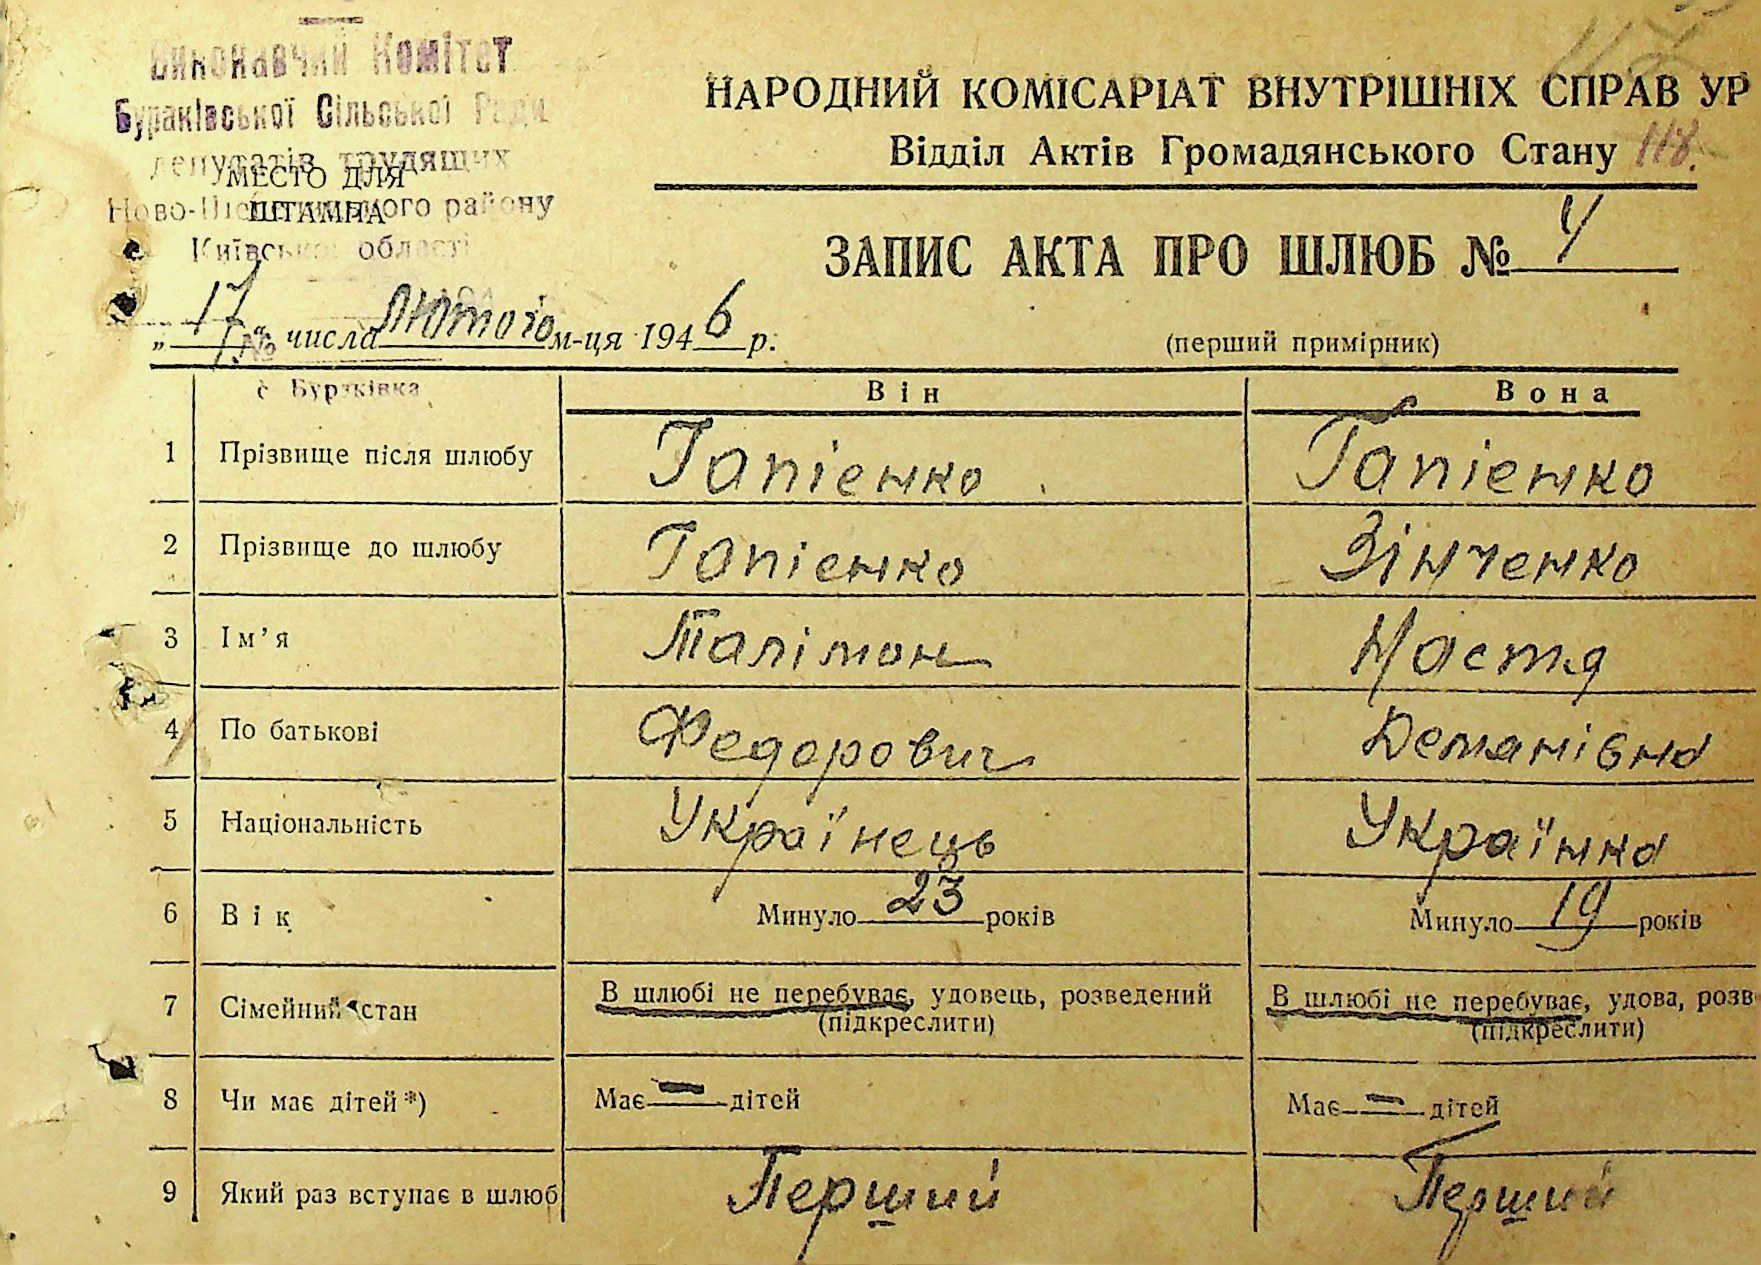 Виконавчий Комітет
Бураківської Сільської Ради
депутатів трудящих
МЕСТО ДЛЯ
ШТАМПА
Ново-Шепелицького району
Київської області
НАРОДНИЙ КОМІСАРІАТ ВНУТРІШНІХ СПРАВ УР
Відділ Актів Громадянського Стану 118.
ЗАПИС АКТА ПРО ШЛЮБ № 4
„ 17 “ числа Лютого м-ця 1946 р.
(перший примірник)
с Бураківка
Він Вона
1 Прізвище після шлюбу Гапієнко Гапієнко
2 Прізвище до шлюбу Гапієнко Зінченко
3 Ім’я Палімон Настя
4 По батькові Федорович Демянівна
5 Національність Українець Українка
6 Вік Минуло 23 років Минуло 19 років
7 Сімейний стан В шлюбі не перебуває, удовець, розведений В шлюбі не перебуває, удова, розв
(підкреслити) (підкреслити)
8 Чи має дітей*) Має — дітей Має — дітей
9 Який раз вступає в шлюб Перший Перший